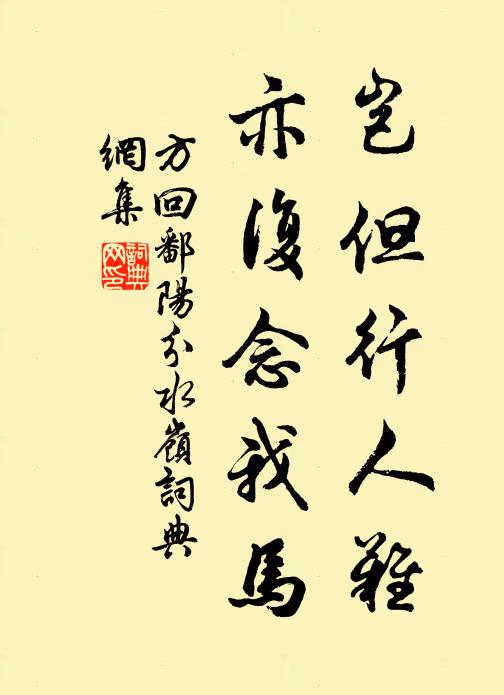 豈但行人難
亦復念我馬
方回鄱陽分水嶺詞典
網集
詞典
网印